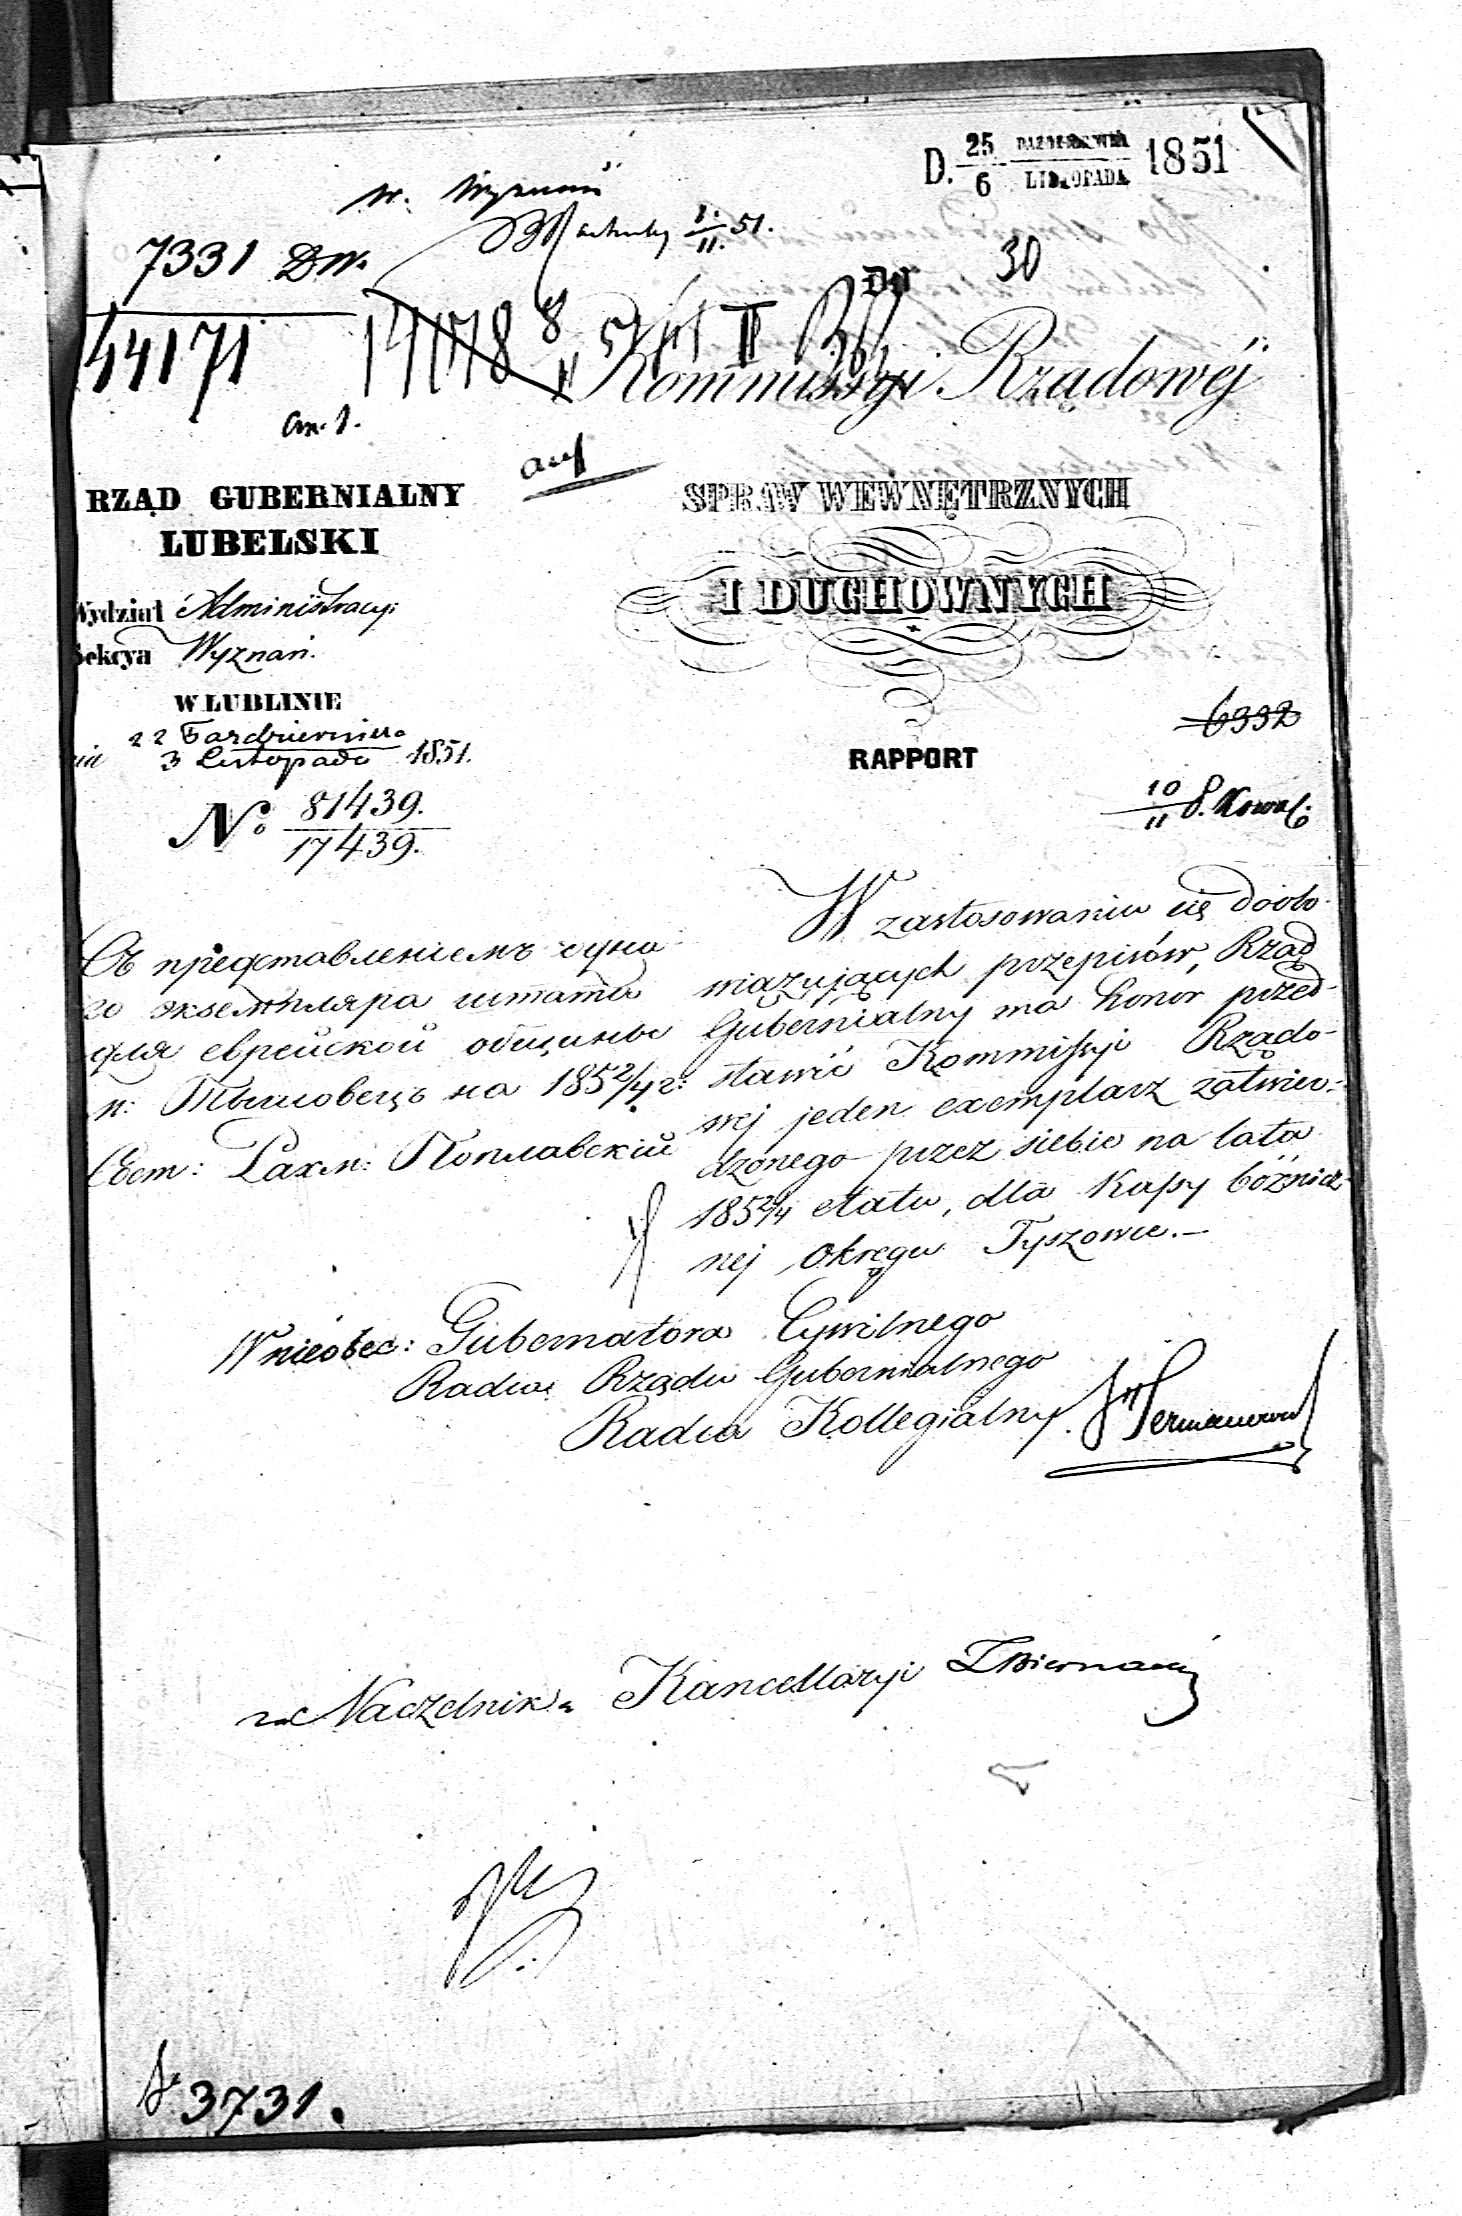 D. 25/6 PAŹDZIERNIKA/LISTOPADA 1851
7331 Dw.
II. 51.
30
Do
44171
14178 8/II 51 II
Kommissyi Rządowéj
an. 1.
RZĄD GUBERNIALNY
LUBELSKI
SPRAW WEWNĘTRZNYCH
I DUCHOWNYCH
Wydział Administracyi
Sekcya Wyznań.
W LUBLINIE
nia 22 Października/3 Listopada 1851.
No 81439./17439.
6332
RAPPORT
10/11
Съ представленіемъ одно-
го экземпляра штата
для еврейской общины
п: Тышовецъ на 1852/4 г:
Свет: Рахм: Поплавскій
W zastosowaniu się do obo-
wiązujących przepisów, Rząd
Gubernialny ma honor przed-
stawić Kommissyi Rządo-
wej jeden exemplarz zatwier-
dzonego przez siebie na lata
1852/4 etatu, dla Kassy bóżnicz-
nej Okręgu Tyszowce.-
W nieobec: Gubernatora Cywilnego
Radca Rządu Gubernialnego
Radca Kollegialny
za Naczelnika Kancellaryi
3731.